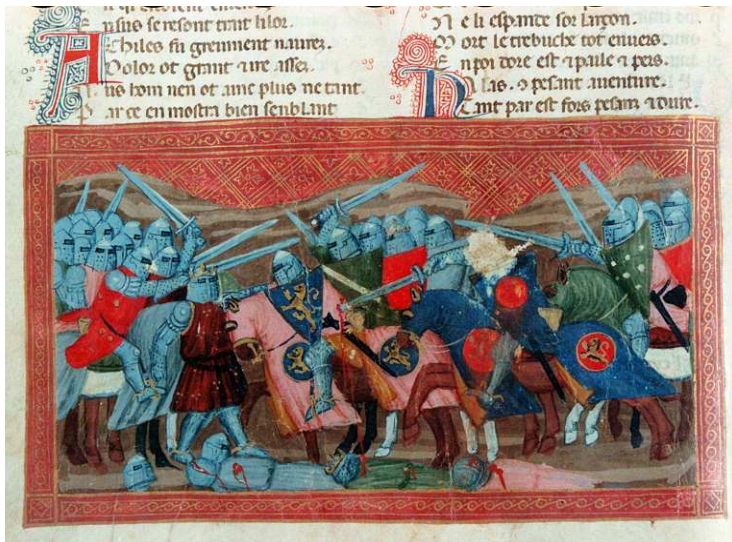 Ensus se resont trait lilor.
Achiles fu greument naurez.
Dolor ot grant ⁊ ire assez.
Nus hom nen ot anc plus ne tant.
Par ce en mostra bien senblant
Ne li espande sor larcon.
Mort le trebuche tot enuers.
En poi dore est ⁊ paule ⁊ pers.
Hlas. o pesant auenture.
Tant par est fors pesanz ⁊ dure.